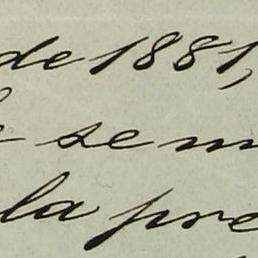 de 1881,
se m
la pre